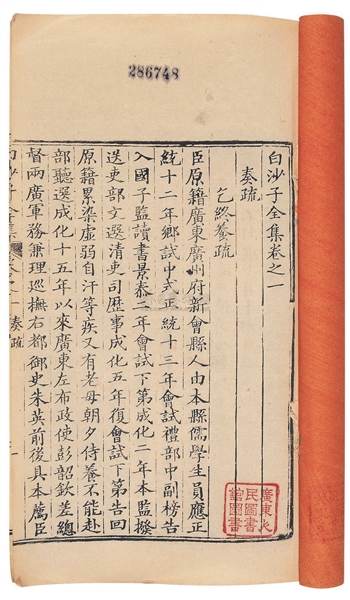 286748
白沙子全集卷之一
奏疏
乞終養疏
臣原籍廣東廣州府新會縣人由本縣儒學生員應正
統十二年鄉試中式正統十三年會試禮部中副榜告
入國子監讀書景泰二年會試下第成化二年本監撥
送吏部文選清吏司歷事成化五年復會試下第告回
原籍累染虛弱自汗等疾又有老母朝夕侍養不能赴
部聽選成化十五年以來廣東左布政使彭韶欽差總
督兩廣軍務兼理巡撫右都御史朱英前後具本薦臣
白沙子全集 卷之一 奏疏 一
廣東人
民圖書
館圖書